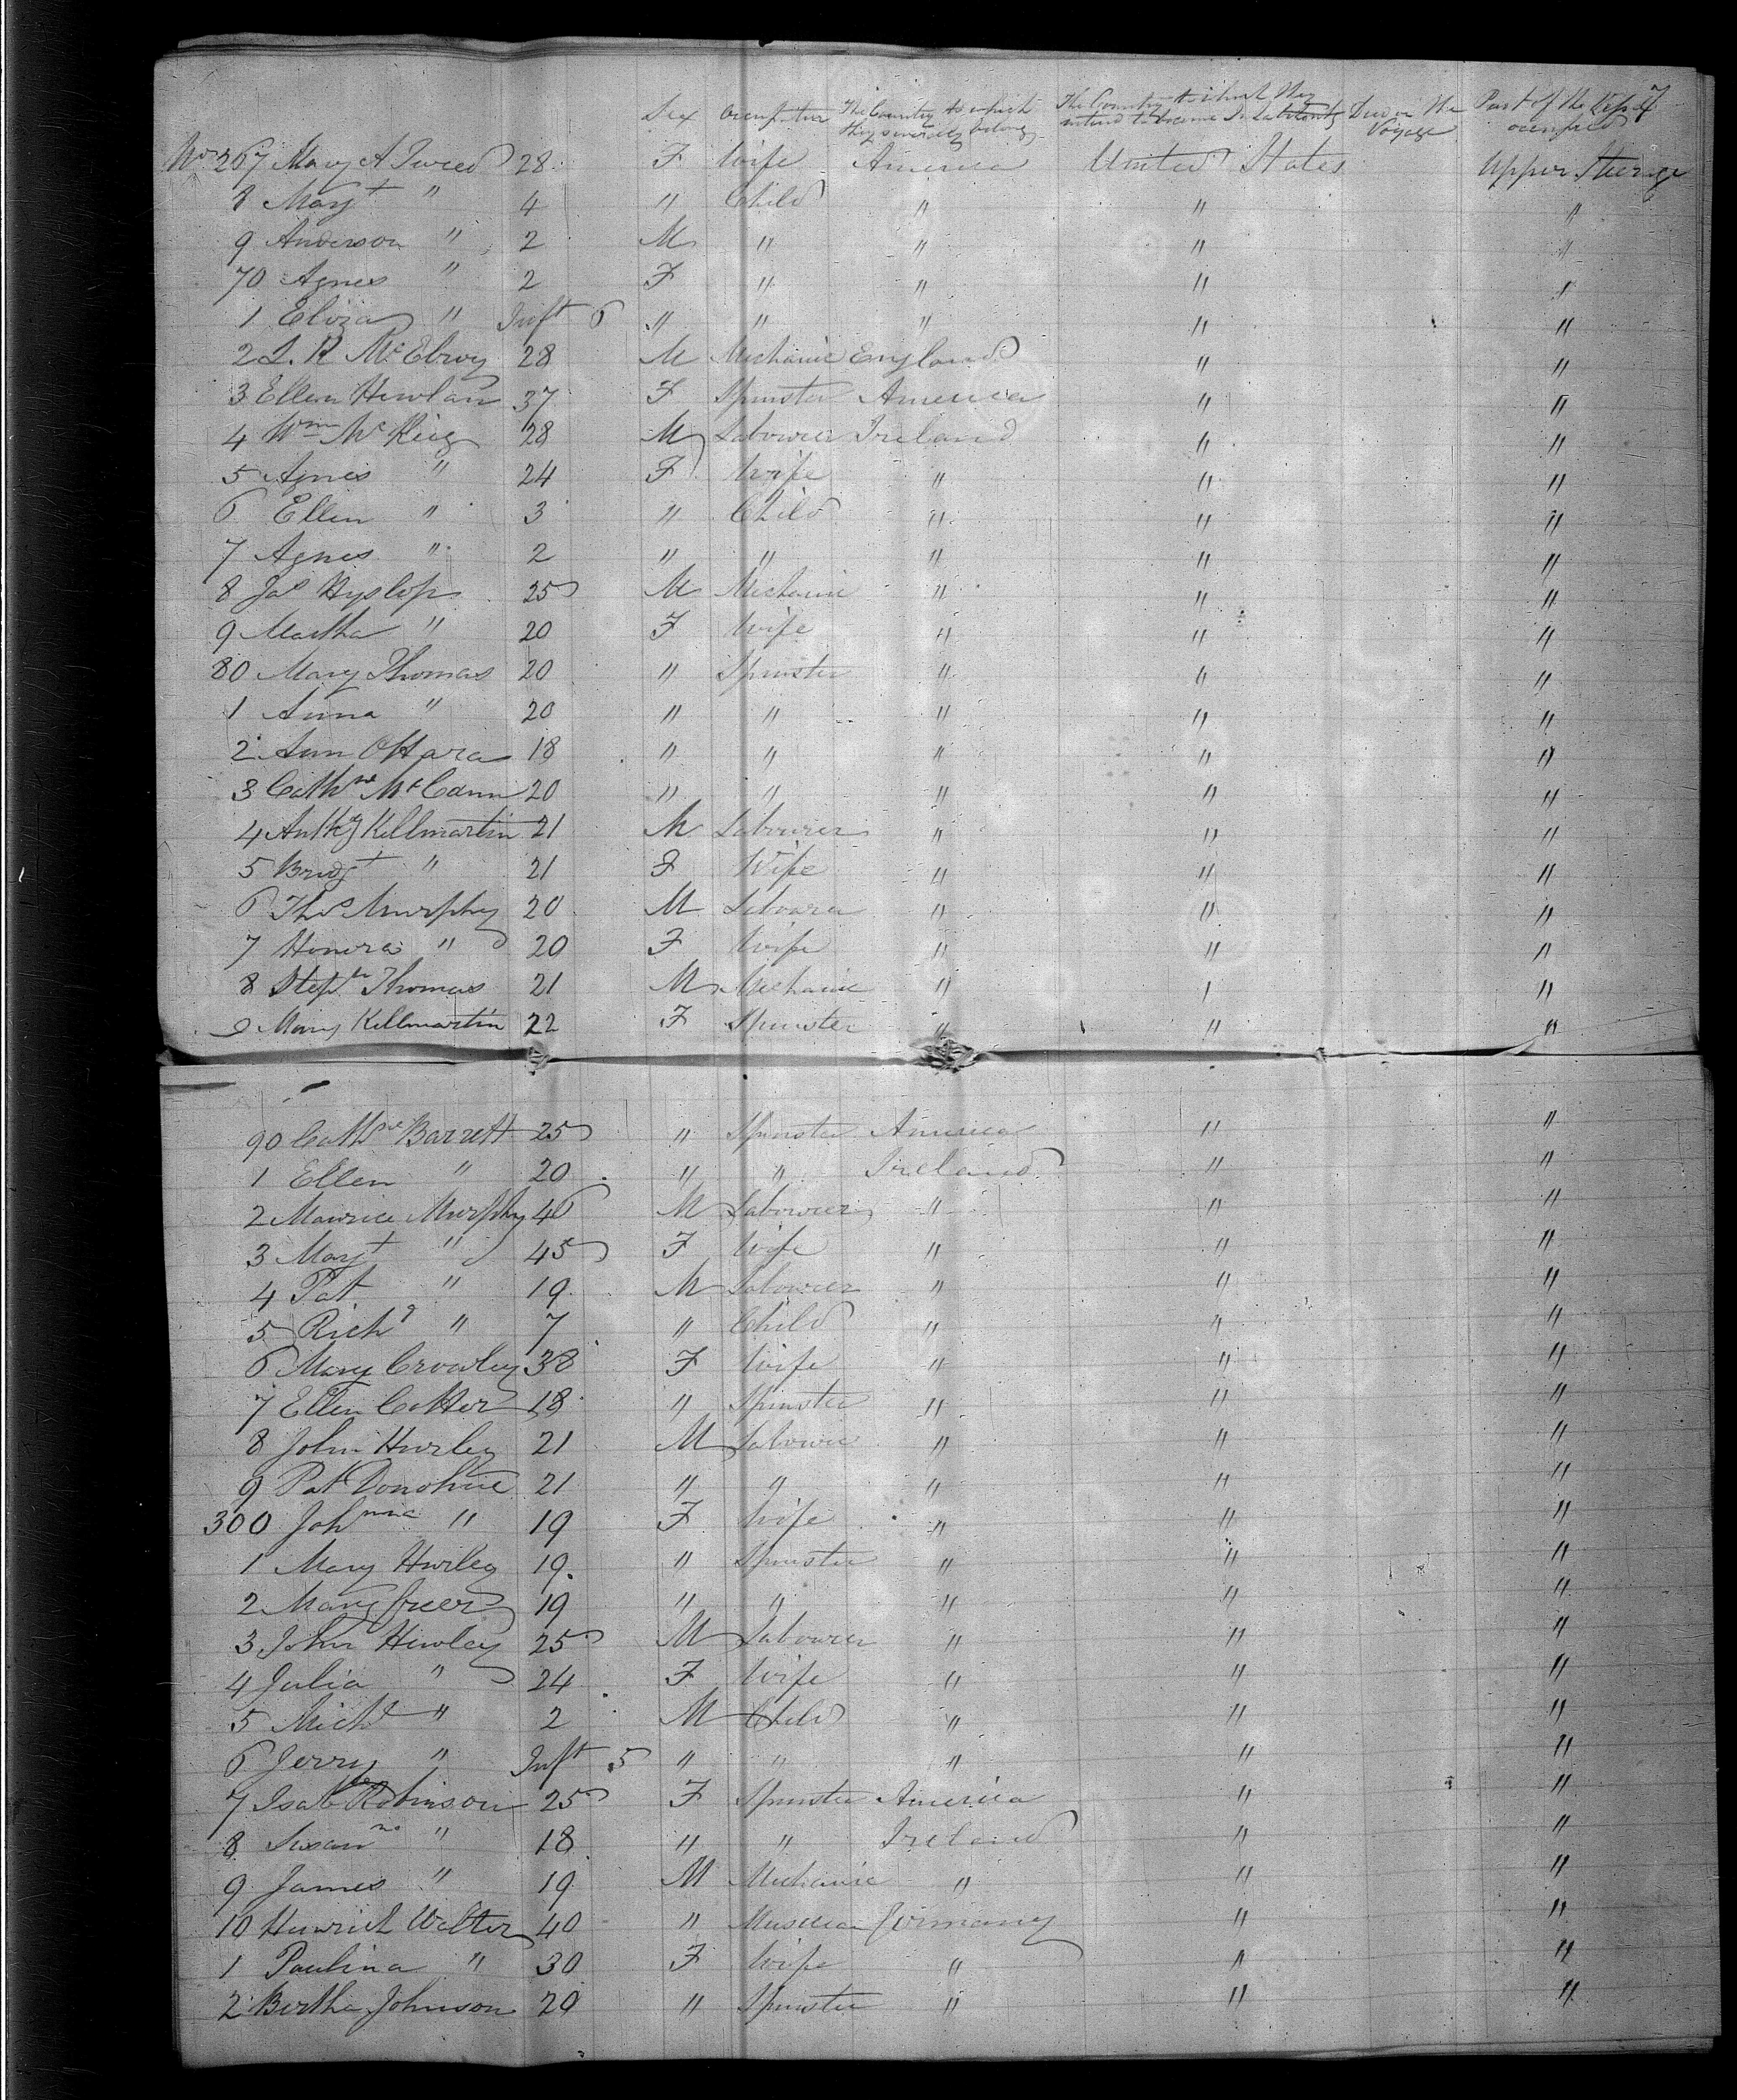 7
Sex Occupation The Country to which they severally belong The Country to which they intend to become Inhabitants Died on the Voyage Part of the Vessel occupied
No 267 Mary A Tweed 28 F Wife America United States Upper Steerage
8 Margt " 4 " Child " " "
9 Anderson " 2 M " " " "
70 Agnes " 2 F " " " "
1 Eliza " Inft 6 " " " " "
2 L. R. McElroy 28 M Mechanic England " "
3 Ellen Hewlan 37 F Spinster America " "
4 Wm McKeig 28 M Labourer Ireland " "
5 Agnes " 24 F Wife " " "
6 Ellen " 3 " Child " " "
7 Agnes " 2 " " " " "
8 Jas Hyslop 25 M Mechanic " " "
9 Martha " 20 F Wife " " "
80 Mary Thomas 20 " Spinster " " "
1 Anna " 20 " " " " "
2 Ann OHara 18 " " " " "
3 Cathne McCann 20 " " " " "
4 Anthy Killmartin 21 M Labourer " " "
5 Bridgt " 21 F Wife " " "
6 Thos Murphy 20 M Labourer " " "
7 Honora " 20 F Wife " " "
8 Stepn Thomas 21 M Mechanic " " "
9 Mary Killmartin 22 F Spinster " " "
90 Cathne Barrett 25 " Spinster America " "
1 Ellen " 20 " " Ireland " "
2 Maurice Murphy 46 M Labourer " " "
3 Margt " 45 F Wife " " "
4 Pat " 19 M Labourer " " "
5 Richd " 7 " Child " " "
6 Mary Crowley 38 F Wife " " "
7 Ellen Cotter 18 " Spinster " " "
8 John Hurley 21 M Labourer " " "
9 Pat Donohue 21 " " " " "
300 Johnna " 19 F Wife " " "
1 Mary Hurley 19 " Spinster " " "
2 Mary Greer 19 " " " " "
3 John Hurley 25 M Labourer " " "
4 Julia " 24 F Wife " " "
5 Michl " 2 M Child " " "
6 Jerry " Inft 5 " " " " "
7 Isabla Robinson 25 F Spinster America " "
8 Susanna " 18 " " Ireland " "
9 James " 19 M Mechanic " " "
10 Heinrich Walter 40 " Musician Germany " "
1 Paulina " 30 F Wife " " "
2 Bertha Johnson 20 " Spinster " " "